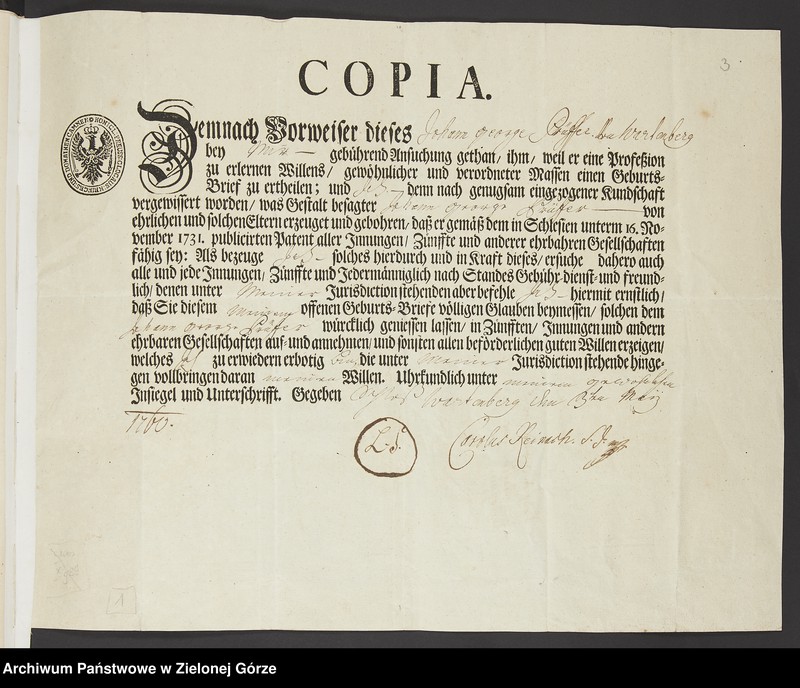 3
COPIA.
Demnach Vorweiser dieses Johann George von Wartenberg
bey Mir gebührend Ansuchung gethan/ ihm/ weil er eine Profeßion
zu erlernen Willens/ gewöhnlicher und verordneter Massen einen Geburts-
Brief zu ertheilen; und Ich denn nach genugsam eingezogener Kundschaft
vergewissert worden/ was Gestalt besagter Johann George von
ehrlichen und solchen Eltern erzeuget und gebohren/ daß er gemäß dem in Schlesien unterm 16. No-
vember 1731. publicirten Patent aller Innungen/ Zünffte und anderer ehrbahren Gesellschaften
fähig sey: Als bezeuge Ich solches hierdurch und in Kraft dieses/ ersuche dahero auch
alle und jede Innungen/ Zünffte und Jedermänniglich nach Standes Gebühr dienst- und freund-
lich/ denen unter Meiner Jurisdiction stehenden aber befehle Ich hiermit ernstlich/
daß Sie diesem Meinem offenen Geburts-Briefe völligen Glauben beymessen/ solchen dem
Johann George würcklich geniessen lassen/ in Zünfften/ Innungen und andern
ehrbaren Gesellschaften auf- und annehmen/ und sonsten allen beförderlichen guten Willen erzeigen/
welches Ich zu erwiedern erbötig bin, die unter Meiner Jurisdiction stehende hinge-
gen vollbringen daran meinen Willen. Uhrkundlich unter meinem
Insiegel und Unterschrifft. Gegeben Schloß Wartenberg den May
1760.
L. S.
1
Archiwum Państwowe w Zielonej Górze